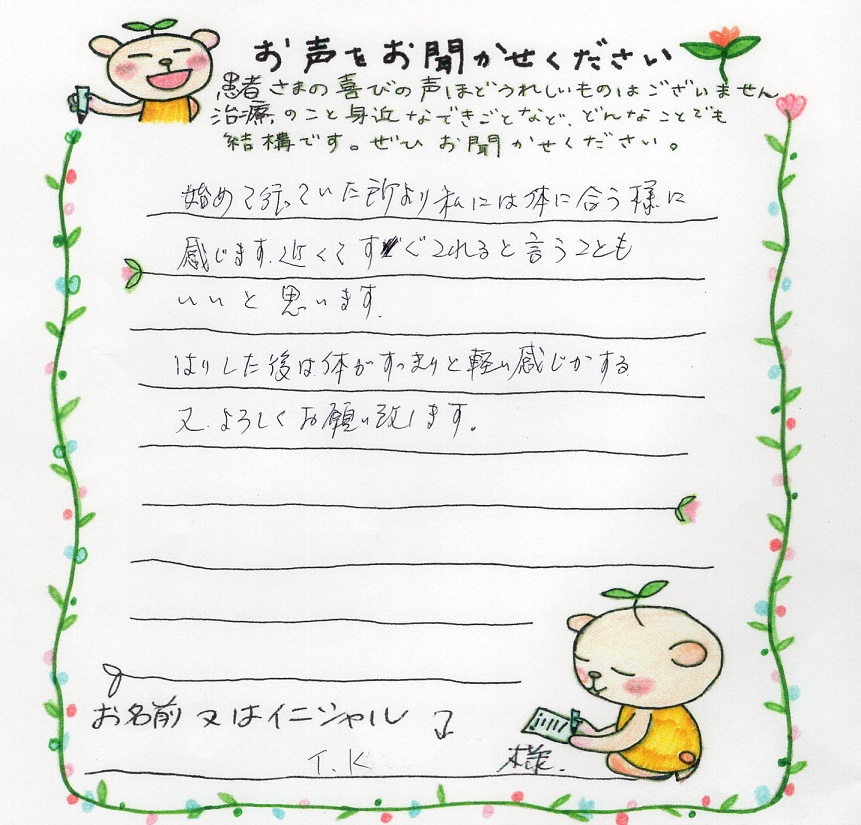 お声をお聞かせください
患者さまの喜びの声ほどうれしいものはございません
治療のこと身近なできごとなど、どんなことでも
結構です。ぜひお聞かせください。
始めて行っていた所より私には体に合う様に
感じます。近くてすぐこれると言うことも
いいと思います。
はりした後は体がすっきりと軽い感じがする
又、よろしくお願い致します。
お名前又はイニシャル
T.K 様